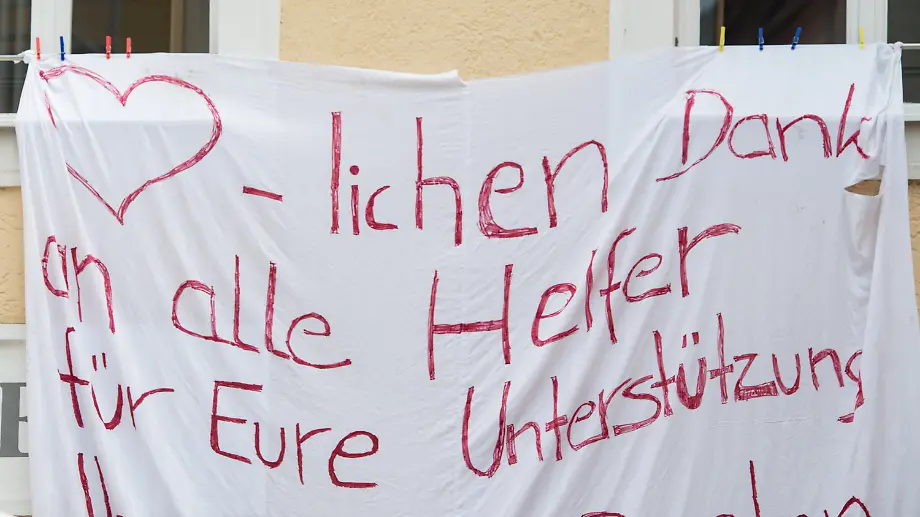 ♥-lichen Dank
an alle Helfer
für Eure Unterstützung